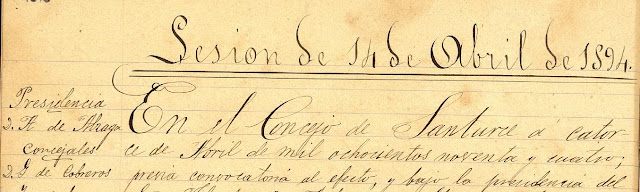 Sesion de 14 de Abril de 1894.
Presidencia
D. F. de Abraga
Concejales
D. G. de Coberos
En el Concejo de Santurce a cator-
ce de Abril de mil ochocientos noventa y cuatro,
previa convocatoria al efecto, y bajo la presidencia del